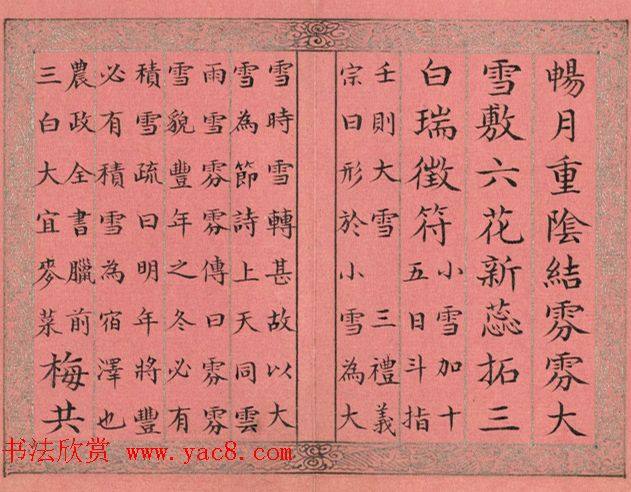 暢月重陰結雰雰大
雪敷六花新蕊拓三
白瑞徵符
小雪加十
五日斗指
壬則大雪 三禮義
宗曰形於小雪為大
雪時雪轉甚故以大
雪為節詩上天同雲
雨雪雰雰傳曰雰雰
雪貌豐年之冬必有
積雪疏曰明年將豐
必有積雪為宿澤也
農政全書臘前
三白大宜麥菜
梅共
书法欣赏 www.yac8.com